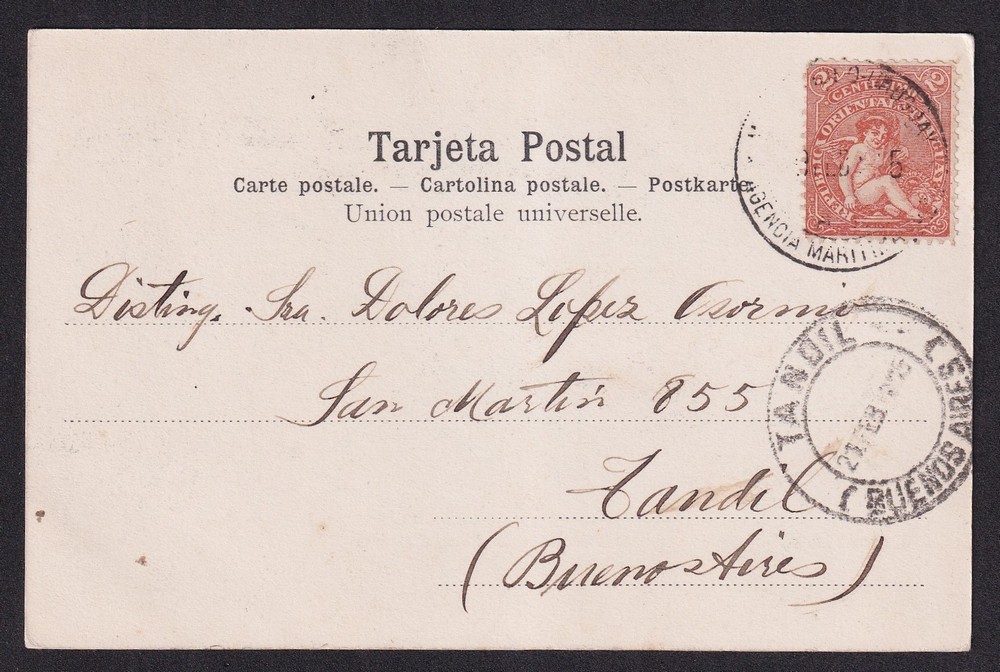 Tarjeta Postal
Carte postale. — Cartolina postale. — Postkarte
Union postale universelle.
2 2
CENTESIMOS
REPUBLICA ORIENTAL URUGUAY
AGENCIA MARITIMA
Disting. Sra. Dolores Lopez Osornio
San Martín 855
Tandil
(Buenos Aires)
TANDIL
21 FEB
(BUENOS AIRES)